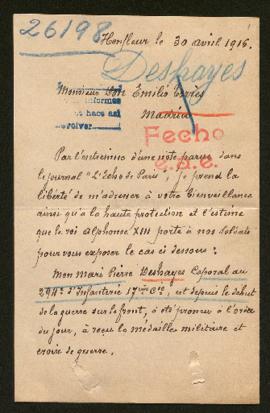 26198
Honfleur le 30 avril 1916.
Deshayes
Monsieur Don Emilio
informes
hace así
Madrid
Fecho
Par l'entremise d'une note parue dans
le journal "L'Echo de Paris", je prend la
liberté de m'adresser à votre bienveillance
ainsi qu'à la haute protection et l'estime
que le roi Alphonse XIII porte à nos soldats
pour vous exposer le cas ci dessous:
Mon Mari Pierre Deshayes Caporal au
294e d'Infanterie 17ème Cie, est depuis le début
de la guerre sur le front, à été promu à l'ordre
du jour, à reçu la médaille militaire et
croix de guerre.